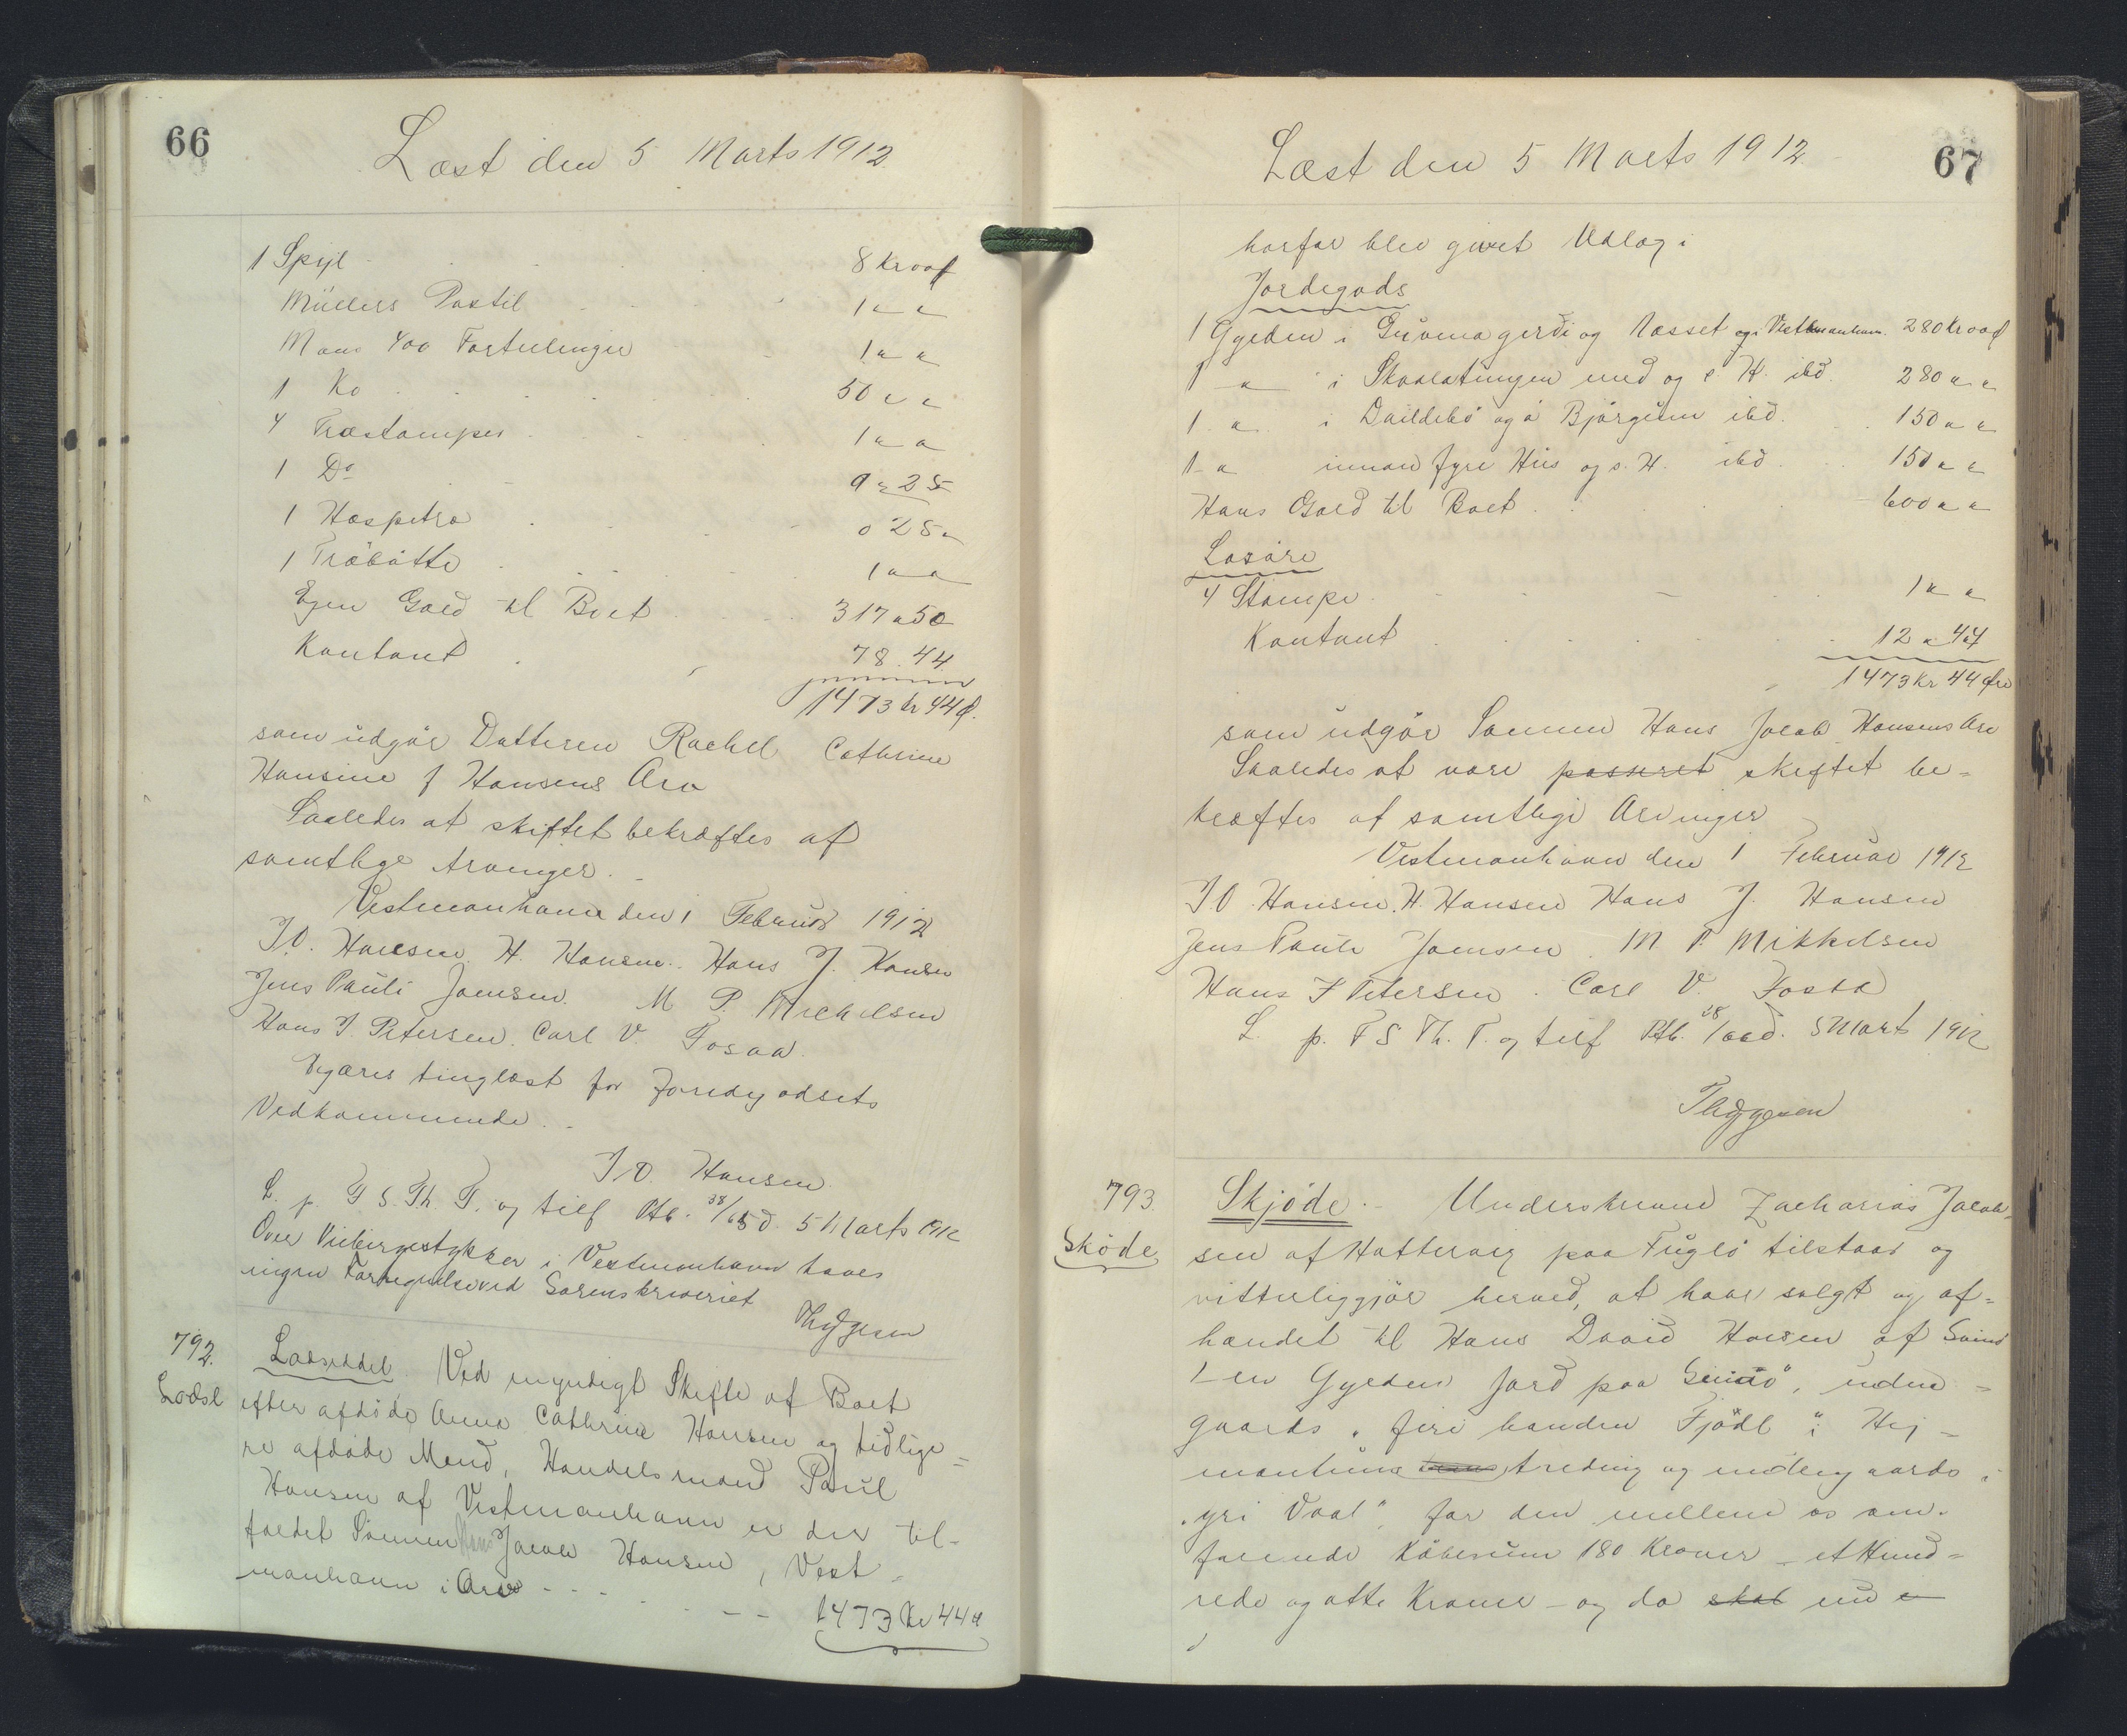 66
Læst den 5 Marts 1912
1 Spejl 8 Kr 00 ø
Müllers Postil 1 " "
Mons 400 Fortællinger 1 " "
1 Ko 50 " "
4 Træstamper 1 " "
1 Do 0 " 25
1 Hespetræ 0 25 "
1 Træbøtte 1 " "
Egen Gæld til Boet 317 " 50
Kontant 78.44
1473 kr 44 Ø.
som udgør Datteren Rachel Cathrine
Hansine f Hansens Arv
Saaledes at skiftet bekræftes af
samtlige Arvinger.
Vestmanhavn den 1 Februar 1912
J.O. Hansen. H. Hansen. Hans J. Hansen
Jens Pauli Joensen. M P. Michelsen
Hans J. Petersen. Carl V. Fosaa.
Begæres tinglæst for Jordegodsets
Vedkommende.
J O. Hansen.
L. p. F S. Th. T. og tilf Ptb. 38/65 d. 5 Marts 1912
Over Vubirgestykker i Vestmanhavn haves
ingen Fortegnelse ved Sorenskriveriet
Thygesen
792.
Lodsl
Lodseddel. Ved myndigt Skifte af Boet
efter afdøde Anna Cathrine Hansen og tidlige=
re afdøde Mand, Handelsmand Poul
Hansen af Vestmanhavn er der til-
faldet Sønnen Hans Jacob Hansen, Vest=
manhavn i Arv 1473 Kr 44 ø
67
Læst den 5 Marts 1912
horfor blev givet Udlæg i
Jordegods
1 Gylden i Guvenagerdi og Næsset ogs Vestmanhavn. 280 Kr 00 ø
1 " i Skaalatungen med og s. H. ibd. 280 " "
1 " i Dalldebø og á Bjørgum ibd. 150 " "
1 " innan fyri Hús og s. H. ibd. 150 " "
Hans Gæld til Boet 600 " "
Løsøre
4 Stampe 1 " "
Kontant 12 " 44
1473 Kr 44 Øre
som udgør Sønnen Hans Jacob Hansens Arv
Saaledes at være passeret skiftet be=
kræftes af samtlige Arvinger
Vestmanhavn den 1 Februar 1912
J O. Hansen. H. Hansen Hans J. Hansen
Jens Pauli Joensen. M P. Mikkelsen
Hans J Petersen. Carl V. Fosaa
L. p. F S Th. T. og tilf Ptb. 38/66 d. 5 Mart 1912
Thygesen
793.
Skøde
Skjøde. Underskrevne Zacharias Jacob=
sen af Hattervig paa Fuglø tilstaar og
vitterliggjør herved, at have solgt og af=
hændet til Hans David Hansen af Svinø
1 - en Gylden Jord paa Svinø, uden=
gaards „firi handan Fjødl" i Hej=
mantuns treding og indengaards i
„yri Vaal", for den mellem os om-
forende Købesum 180 Kroner - et Hund=
rede og otte Kroner - og da skal nu